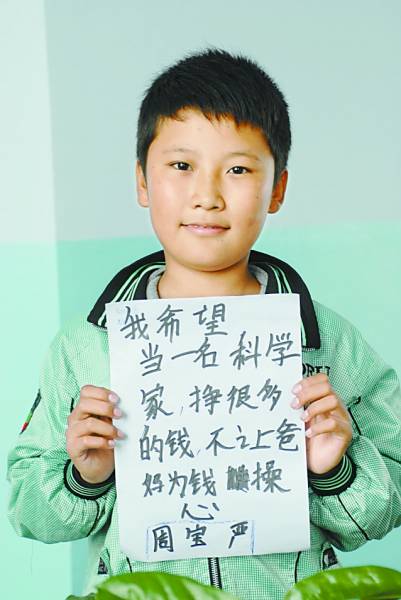 我希望
当一名科学
家,挣很多
的钱,不让爸
妈为钱操
心
周宝严